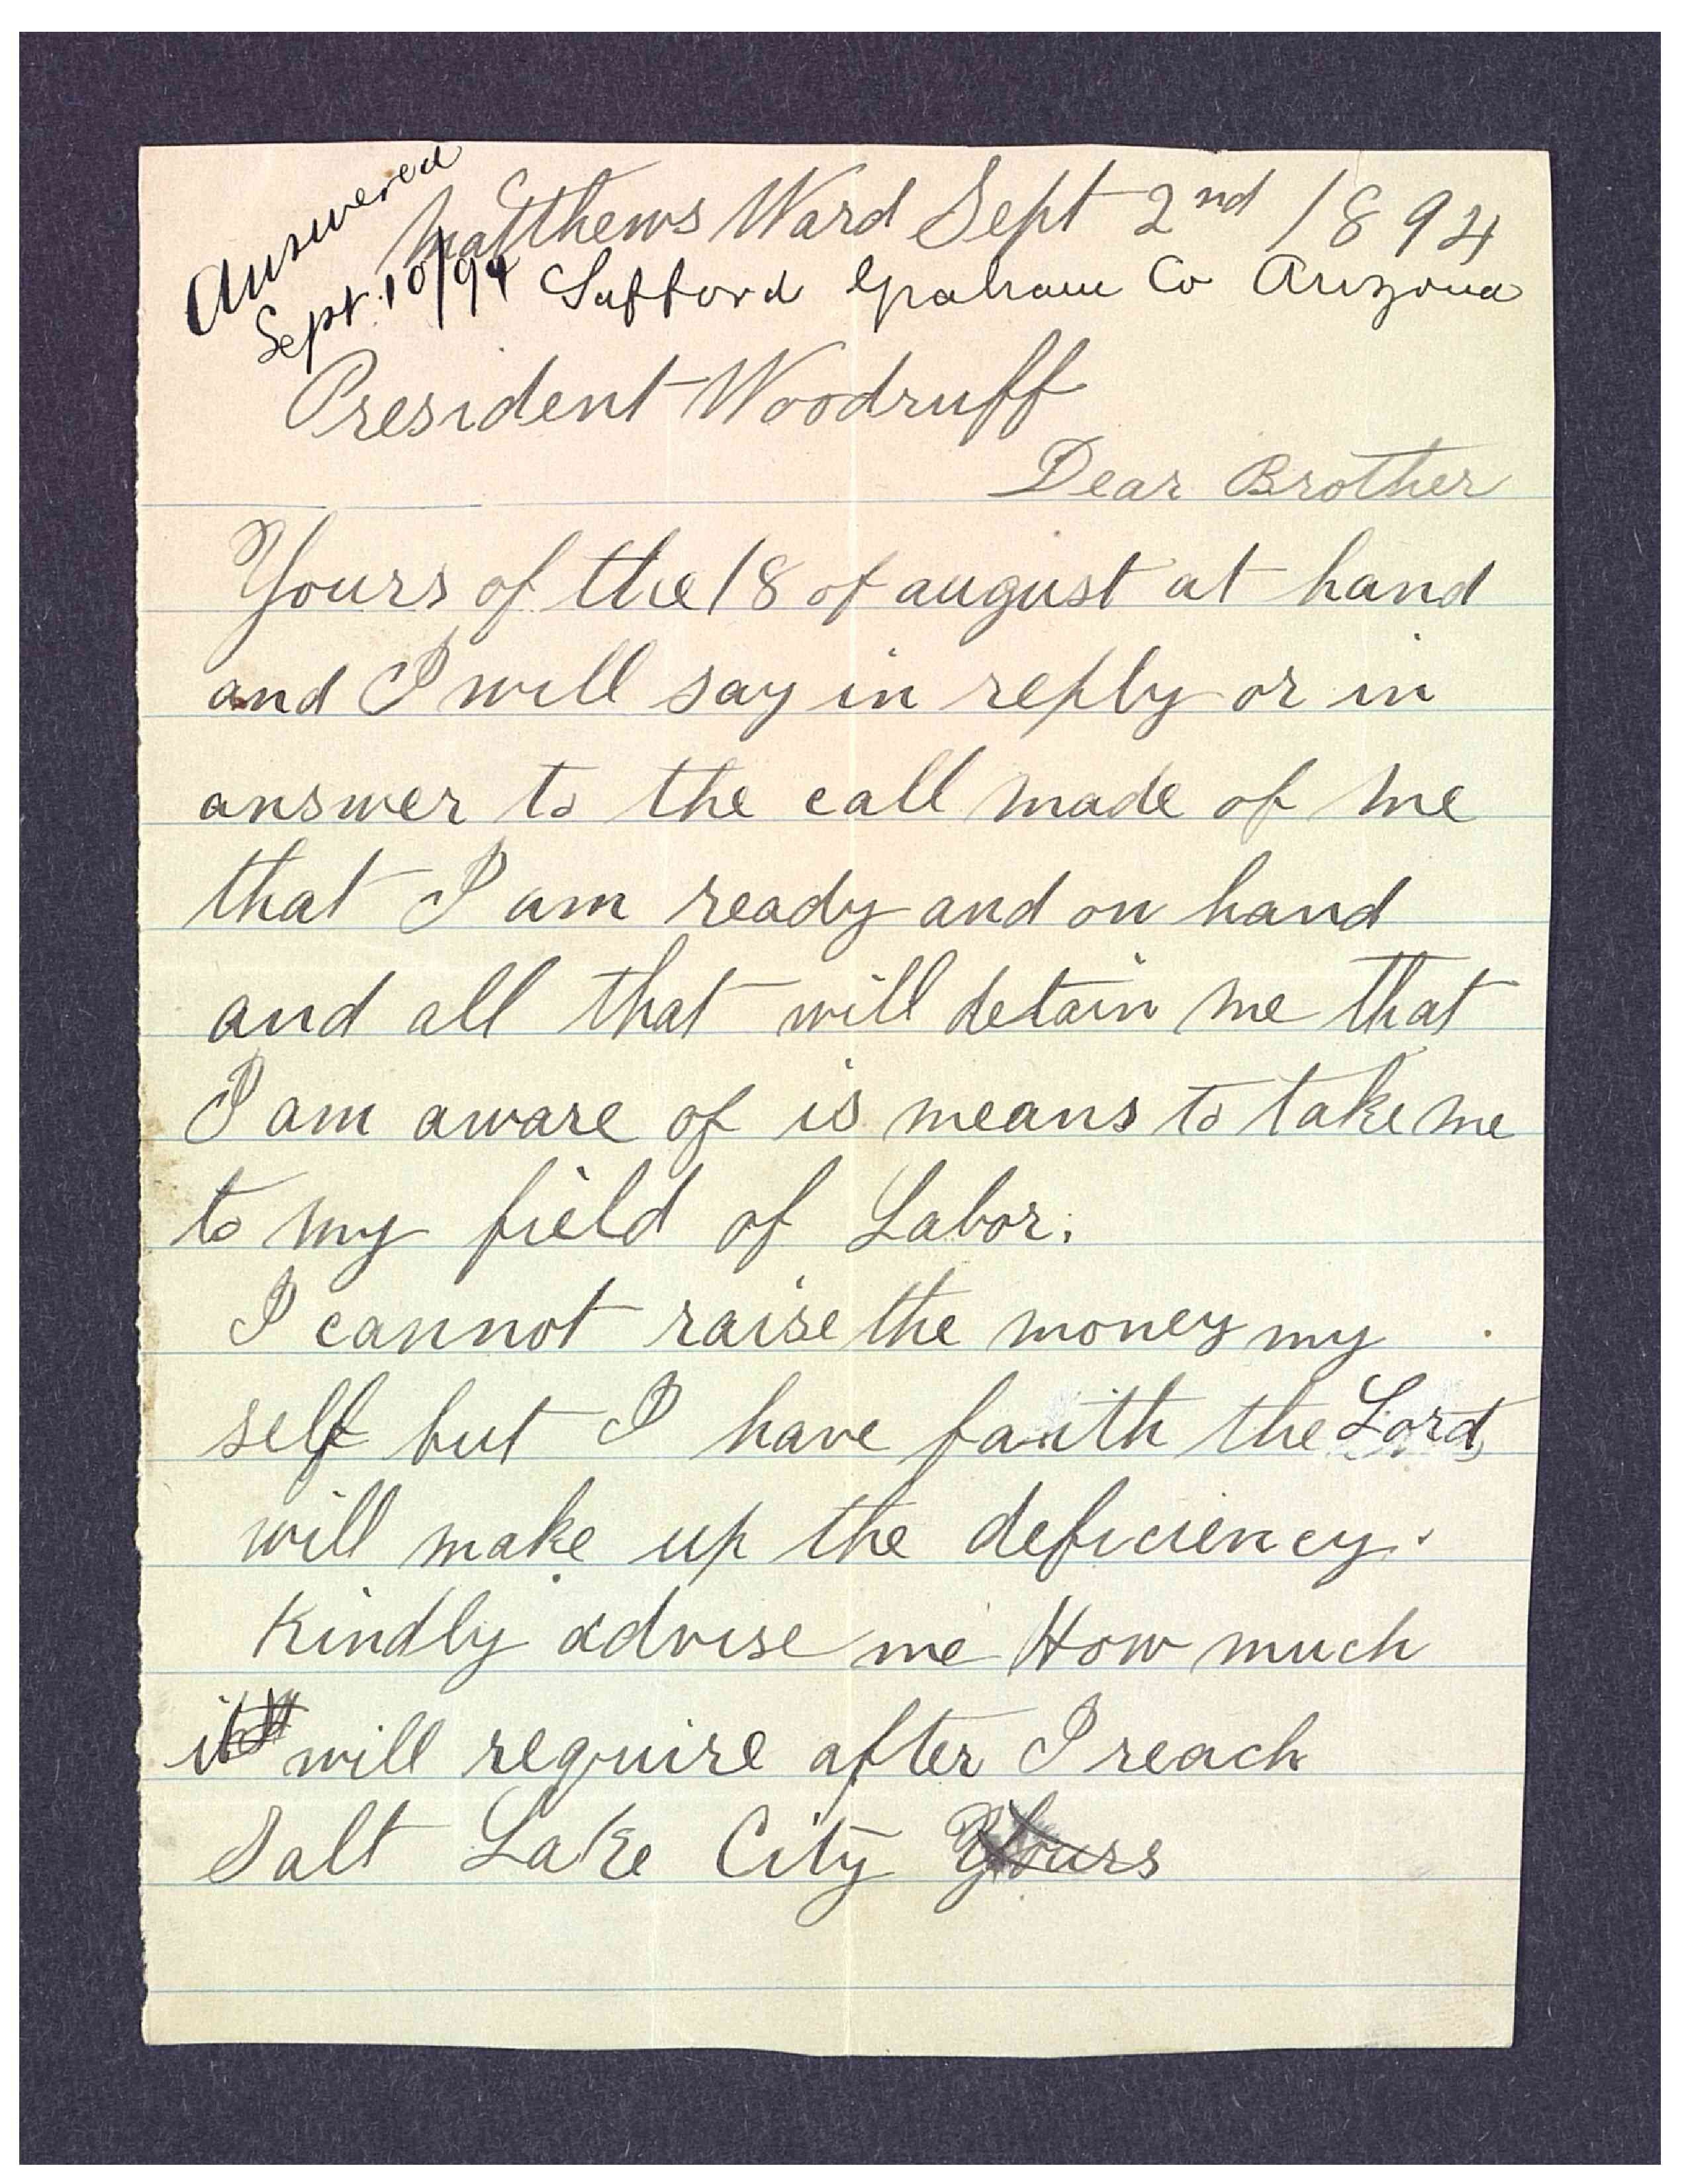 Answered
Sept. 10/94
Matthews Ward Sept 2nd 1894
Safford Graham Co Arizona
President Woodruff
Dear Brother
Yours of the 18 of august at hand
and I will say in reply or in
answer to the call made of me
that I am ready and on hand
and all that will detain me that
I am aware of is means to take me
to my field of Labor.
I cannot raise the money my
self but I have faith the Lord
will make up the deficiency.
Kindly advise me How much
it will require after I reach
Salt Lake City Yours